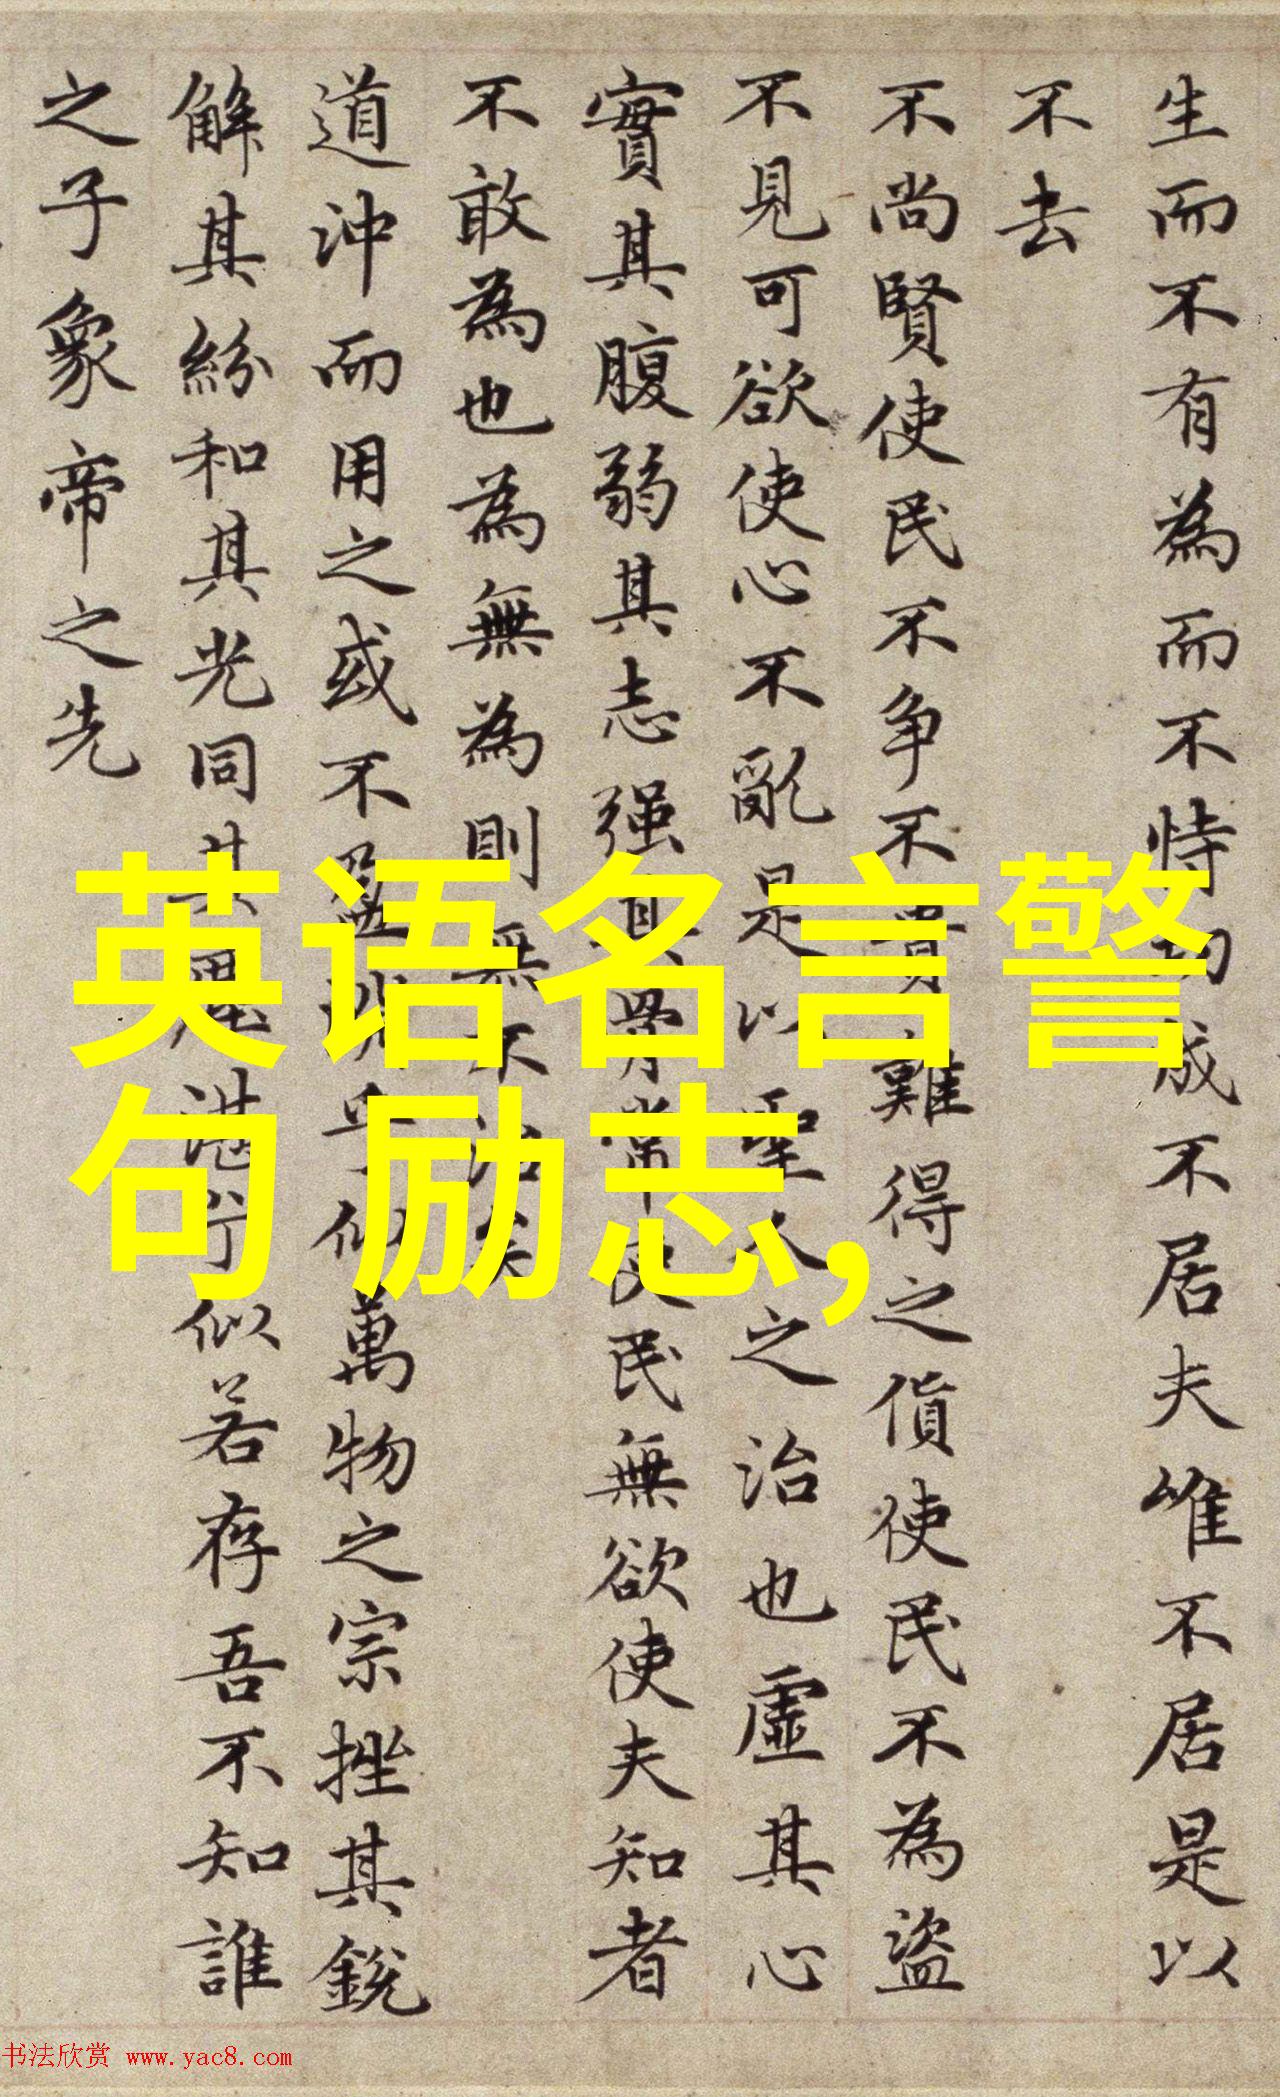 生而不有為而不恃功成不居夫唯不居是以
不去
不尚賢使民不争不貴難得之貨使民不為盜
不見可欲使心不亂是以聖人之治也虛其心
實其腹弱其志强其骨常使民無欲使夫知者
不敢為也為無為則無不治矣
道沖而用之或不盈淵乎似萬物之宗挫其銳
解其紛和其光同其塵湛兮似若存吾不知誰
之子象帝之先
英语名言警
句 励志,
书法欣赏 www.yac8.com